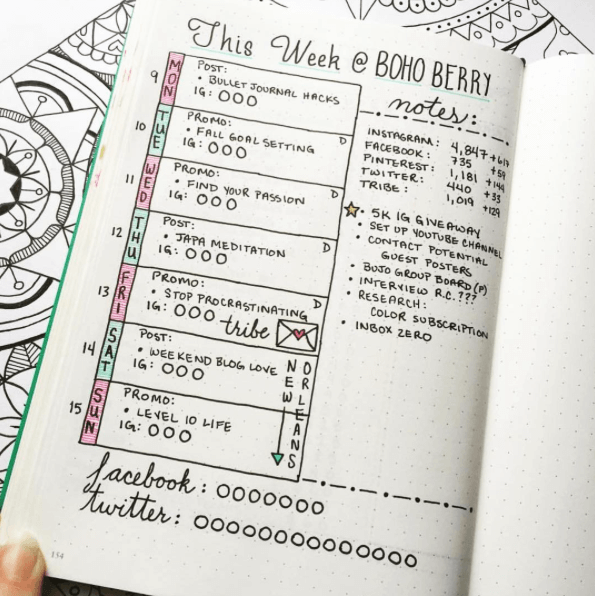 This Week @ BOHO BERRY
9
MON
POST:
• BULLET JOURNAL HACKS
IG: OOO
10
TUE
PROMO:
D
• FALL GOAL SETTING
IG: OOO
11
WED
PROMO:
D
• FIND YOUR PASSION
IG: OOO
12
THU
POST:
D
• JAPA MEDITATION
IG: OOO
13
FRI
PROMO:
D
• STOP PROCRASTINATING
IG: OOO
tribe
14
SAT
POST:
• WEEKEND BLOG LOVE
IG: OOO
15
SUN
PROMO:
• LEVEL 10 LIFE
IG: OOO
NEW
ORLEANS
notes:
INSTAGRAM: 4,847 +617
FACEBOOK: 735 +59
PINTEREST: 1,181 +144
TWITTER: 440 +33
TRIBE: 1,019 +129
• 5K IG GIVEAWAY
• SET UP YOUTUBE CHANNEL
• CONTACT POTENTIAL
GUEST POSTERS
• BUJO GROUP BOARD (P)
• INTERVIEW R.C. ???
• RESEARCH:
COLOR SUBSCRIPTION
• INBOX ZERO
facebook: OOOOOOO
twitter: OOOOOOOOOOOOOO
154